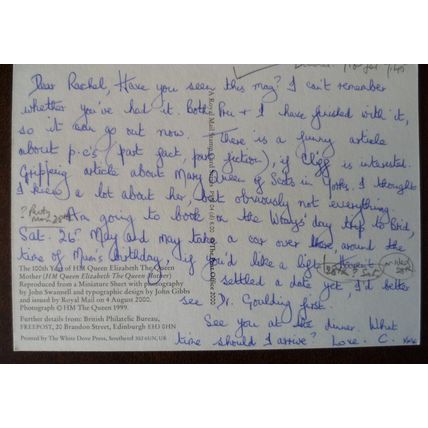 Dear Rachel, Have you seen this mag? I can't remember
whether you've had it. Both Pru + I have finished with it,
so it can go out now. There is a funny article
about p.c.s (part fact, part fiction), if Cliff is interested.
Gripping article about Mary Queen of Scots in Yorks. I thought
I knew a lot about her, but obviously not everything.
Am going to book on the Wrays' day trip to Brid,
Sat. 26th May and may take a car over there, around the
time of Mum's birthday, if you'd like a lift. Haven't
settled a date yet I'd better
see Dr. Goulding first.
See you at the dinner. What
time should I arrive? Love. C.
The 100th Year of HM Queen Elizabeth The Queen
Mother (HM Queen Elizabeth The Queen Mother)
Reproduced from a Miniature Sheet with photography
by John Swannell and typographic design by John Gibbs
and issued by Royal Mail on 4 August 2000.
Photograph © HM The Queen 1999.
Further details from: British Philatelic Bureau,
FREEPOST, 20 Brandon Street, Edinburgh EH3 0HN
Printed by The White Dove Press, Southend SS2 6UN, UK
A Royal Mail Stamp Card